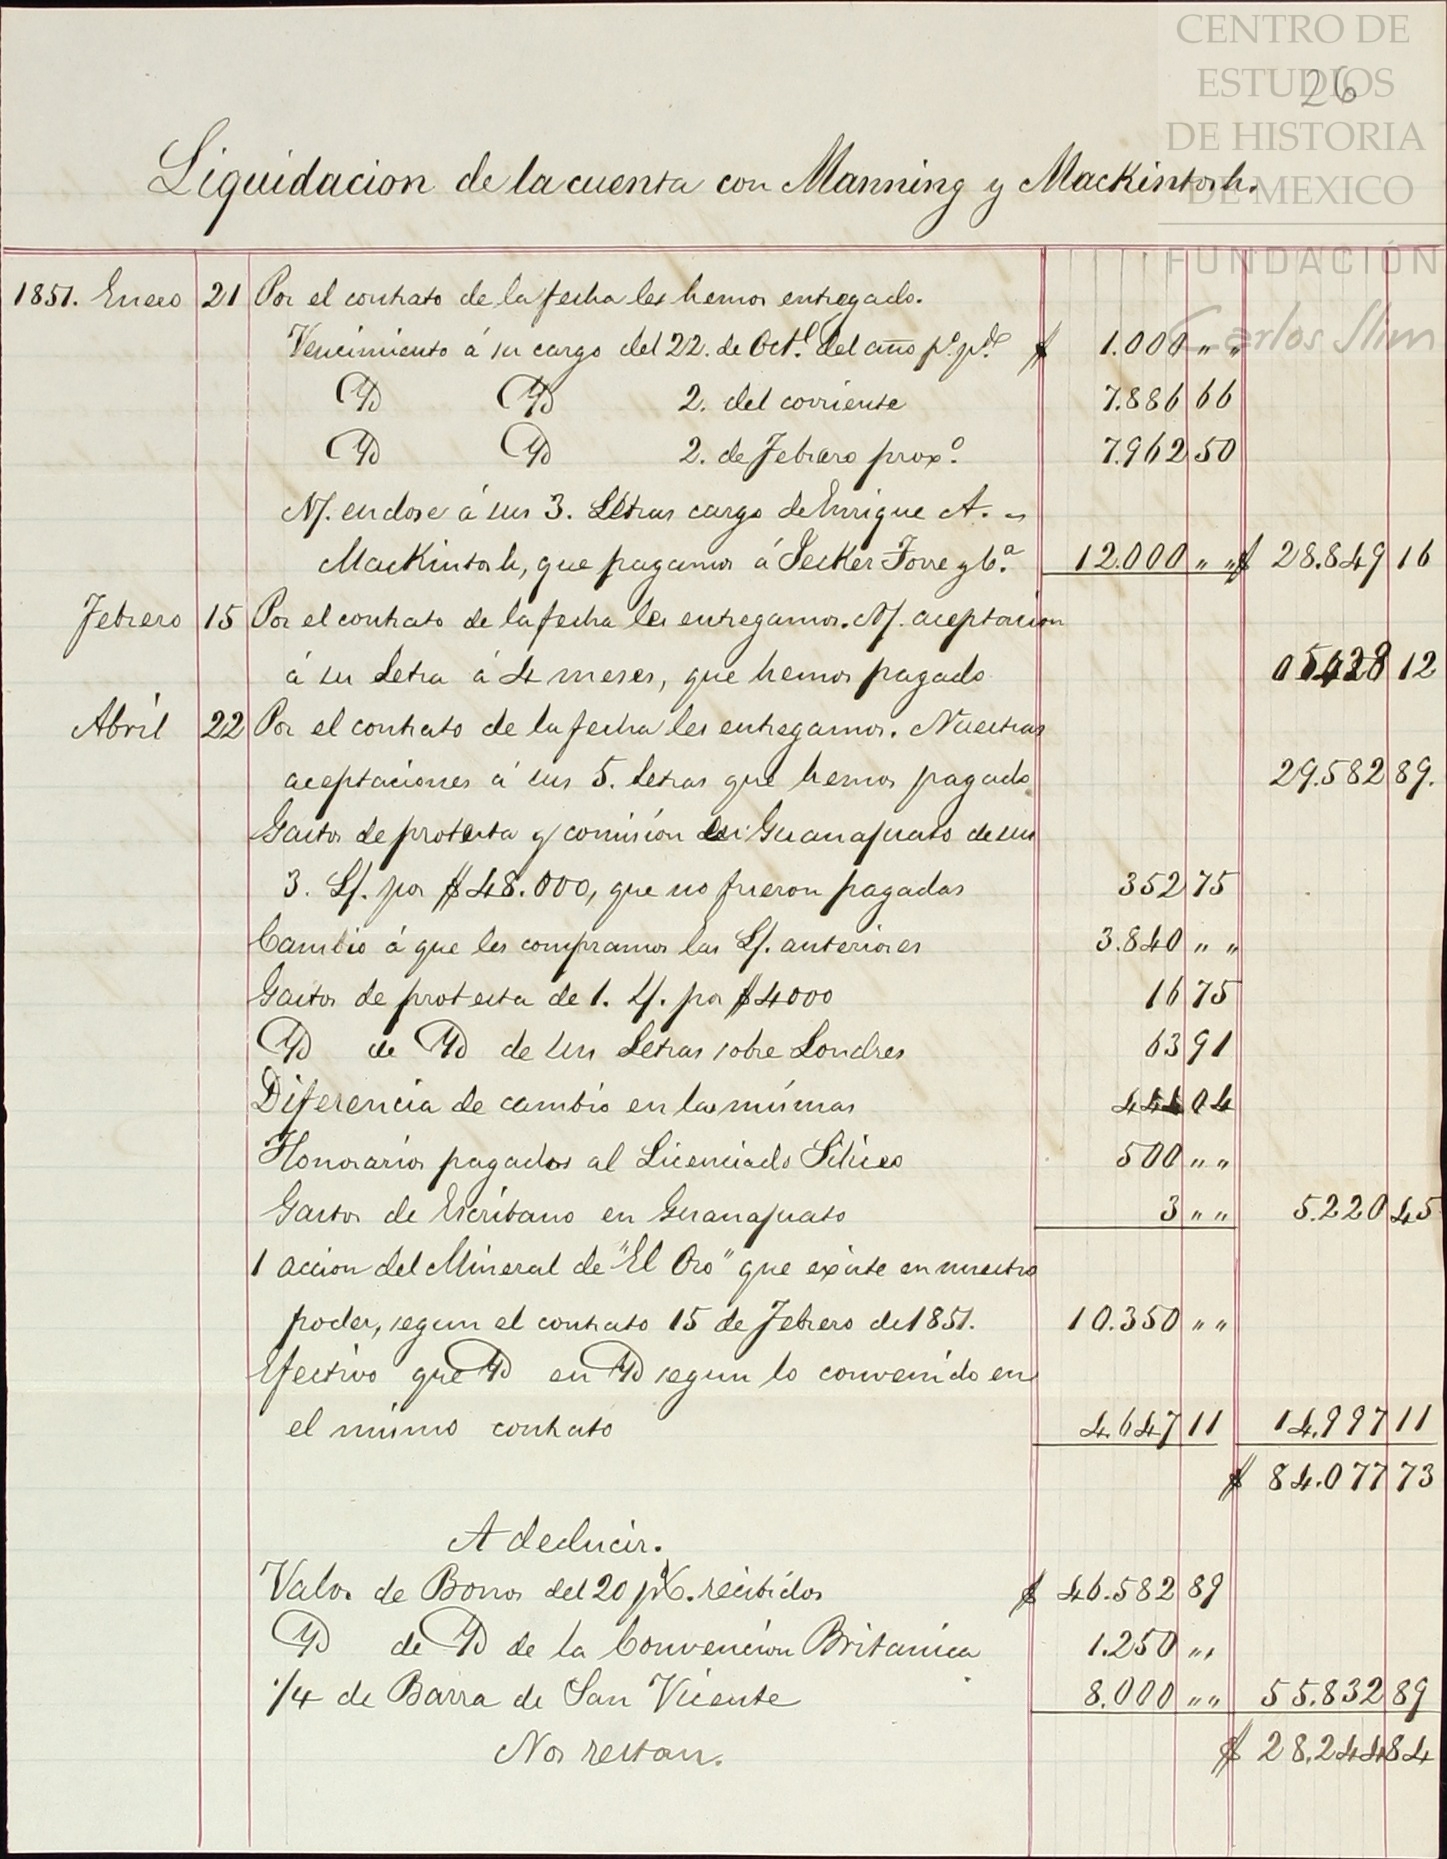 CENTRO DE
ESTUDIOS
DE HISTORIA
DE MEXICO
FUNDACIÓN
Carlos Slim
26
Liquidacion de la cuenta con Manning y Mackintosh.
1851. Enero 21 Por el contrato de la fecha les hemos entregado.
Vencimiento á su cargo del 22. de Oct.e del año p.o p.do $ 1.000 " "
Yd Yd 2. del corriente 7.886 66
Yd Yd 2. de Febrero prox.o 7.962 50
N/. endose á sus 3. Letras cargo de Enrique A.
Mackintosh, que pagamos á Jecker Torre y C.a 12.000 " " $ 28.849 16
Febrero 15 Por el contrato de la fecha les entregamos. N/. aceptacion
á su Letra á 4 meses, que hemos pagado 5428 12
Abril 22 Por el contrato de la fecha les entregamos. Nuestras
aceptaciones á sus 5. Letras que hemos pagado 29.582 89.
Gastos de protesta y comision en Guanajuato de sus
3. L/. por $ 48.000, que no fueron pagadas 352 75
Cambio á que les compramos las L/. anteriores 3.840 " "
Gastos de protesta de 1. L/. por $ 4000 16 75
Yd de Yd de sus Letras sobre Londres 63 91
Diferencia de cambio en las mismas 444 04
Honorarios pagados al Licenciado Siliceo 500 " "
Gastos de Escribano en Guanajuato 3 " " 5.220 45
1 accion del Mineral de "El Oro" que existe en nuestro
poder, segun el contrato 15 de Febrero de 1851. 10.350 " "
Efectivo que Yd en Yd segun lo convenido en
el mismo contrato 4.647 11 14.997 11
$ 84.077 73
A deducir.
Valor de Bonos del 20 p%. recibidos $ 46.582 89
Yd de Yd de la Convencion Britanica 1.250 " "
1/4 de Barra de San Vicente 8.000 " " 55.832 89
Nos restan. $ 28.244 84